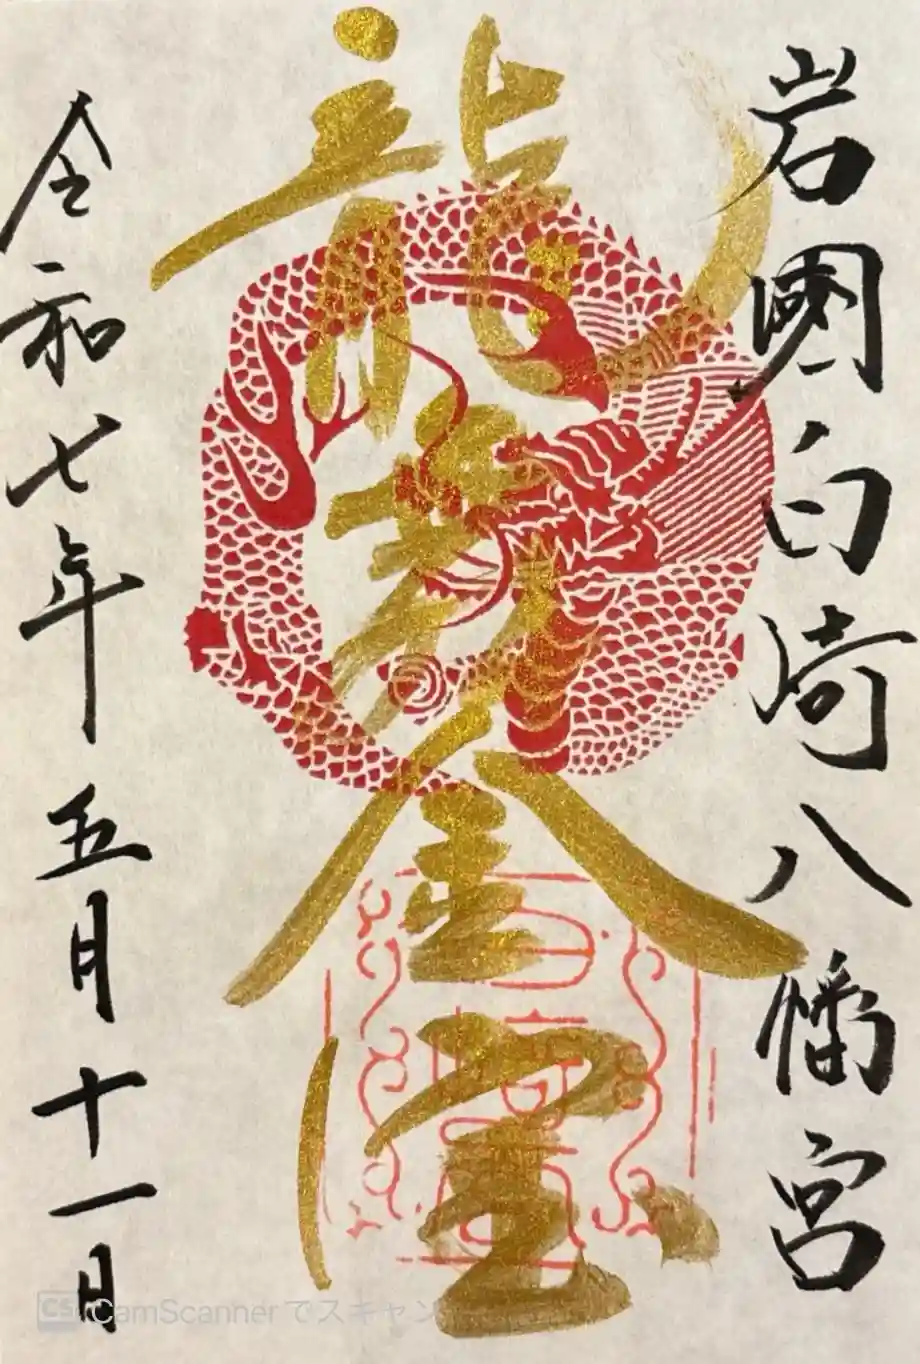 岩國白崎八幡宮
龍發金宝
令和七年五月十一日
CS CamScannerでスキャン